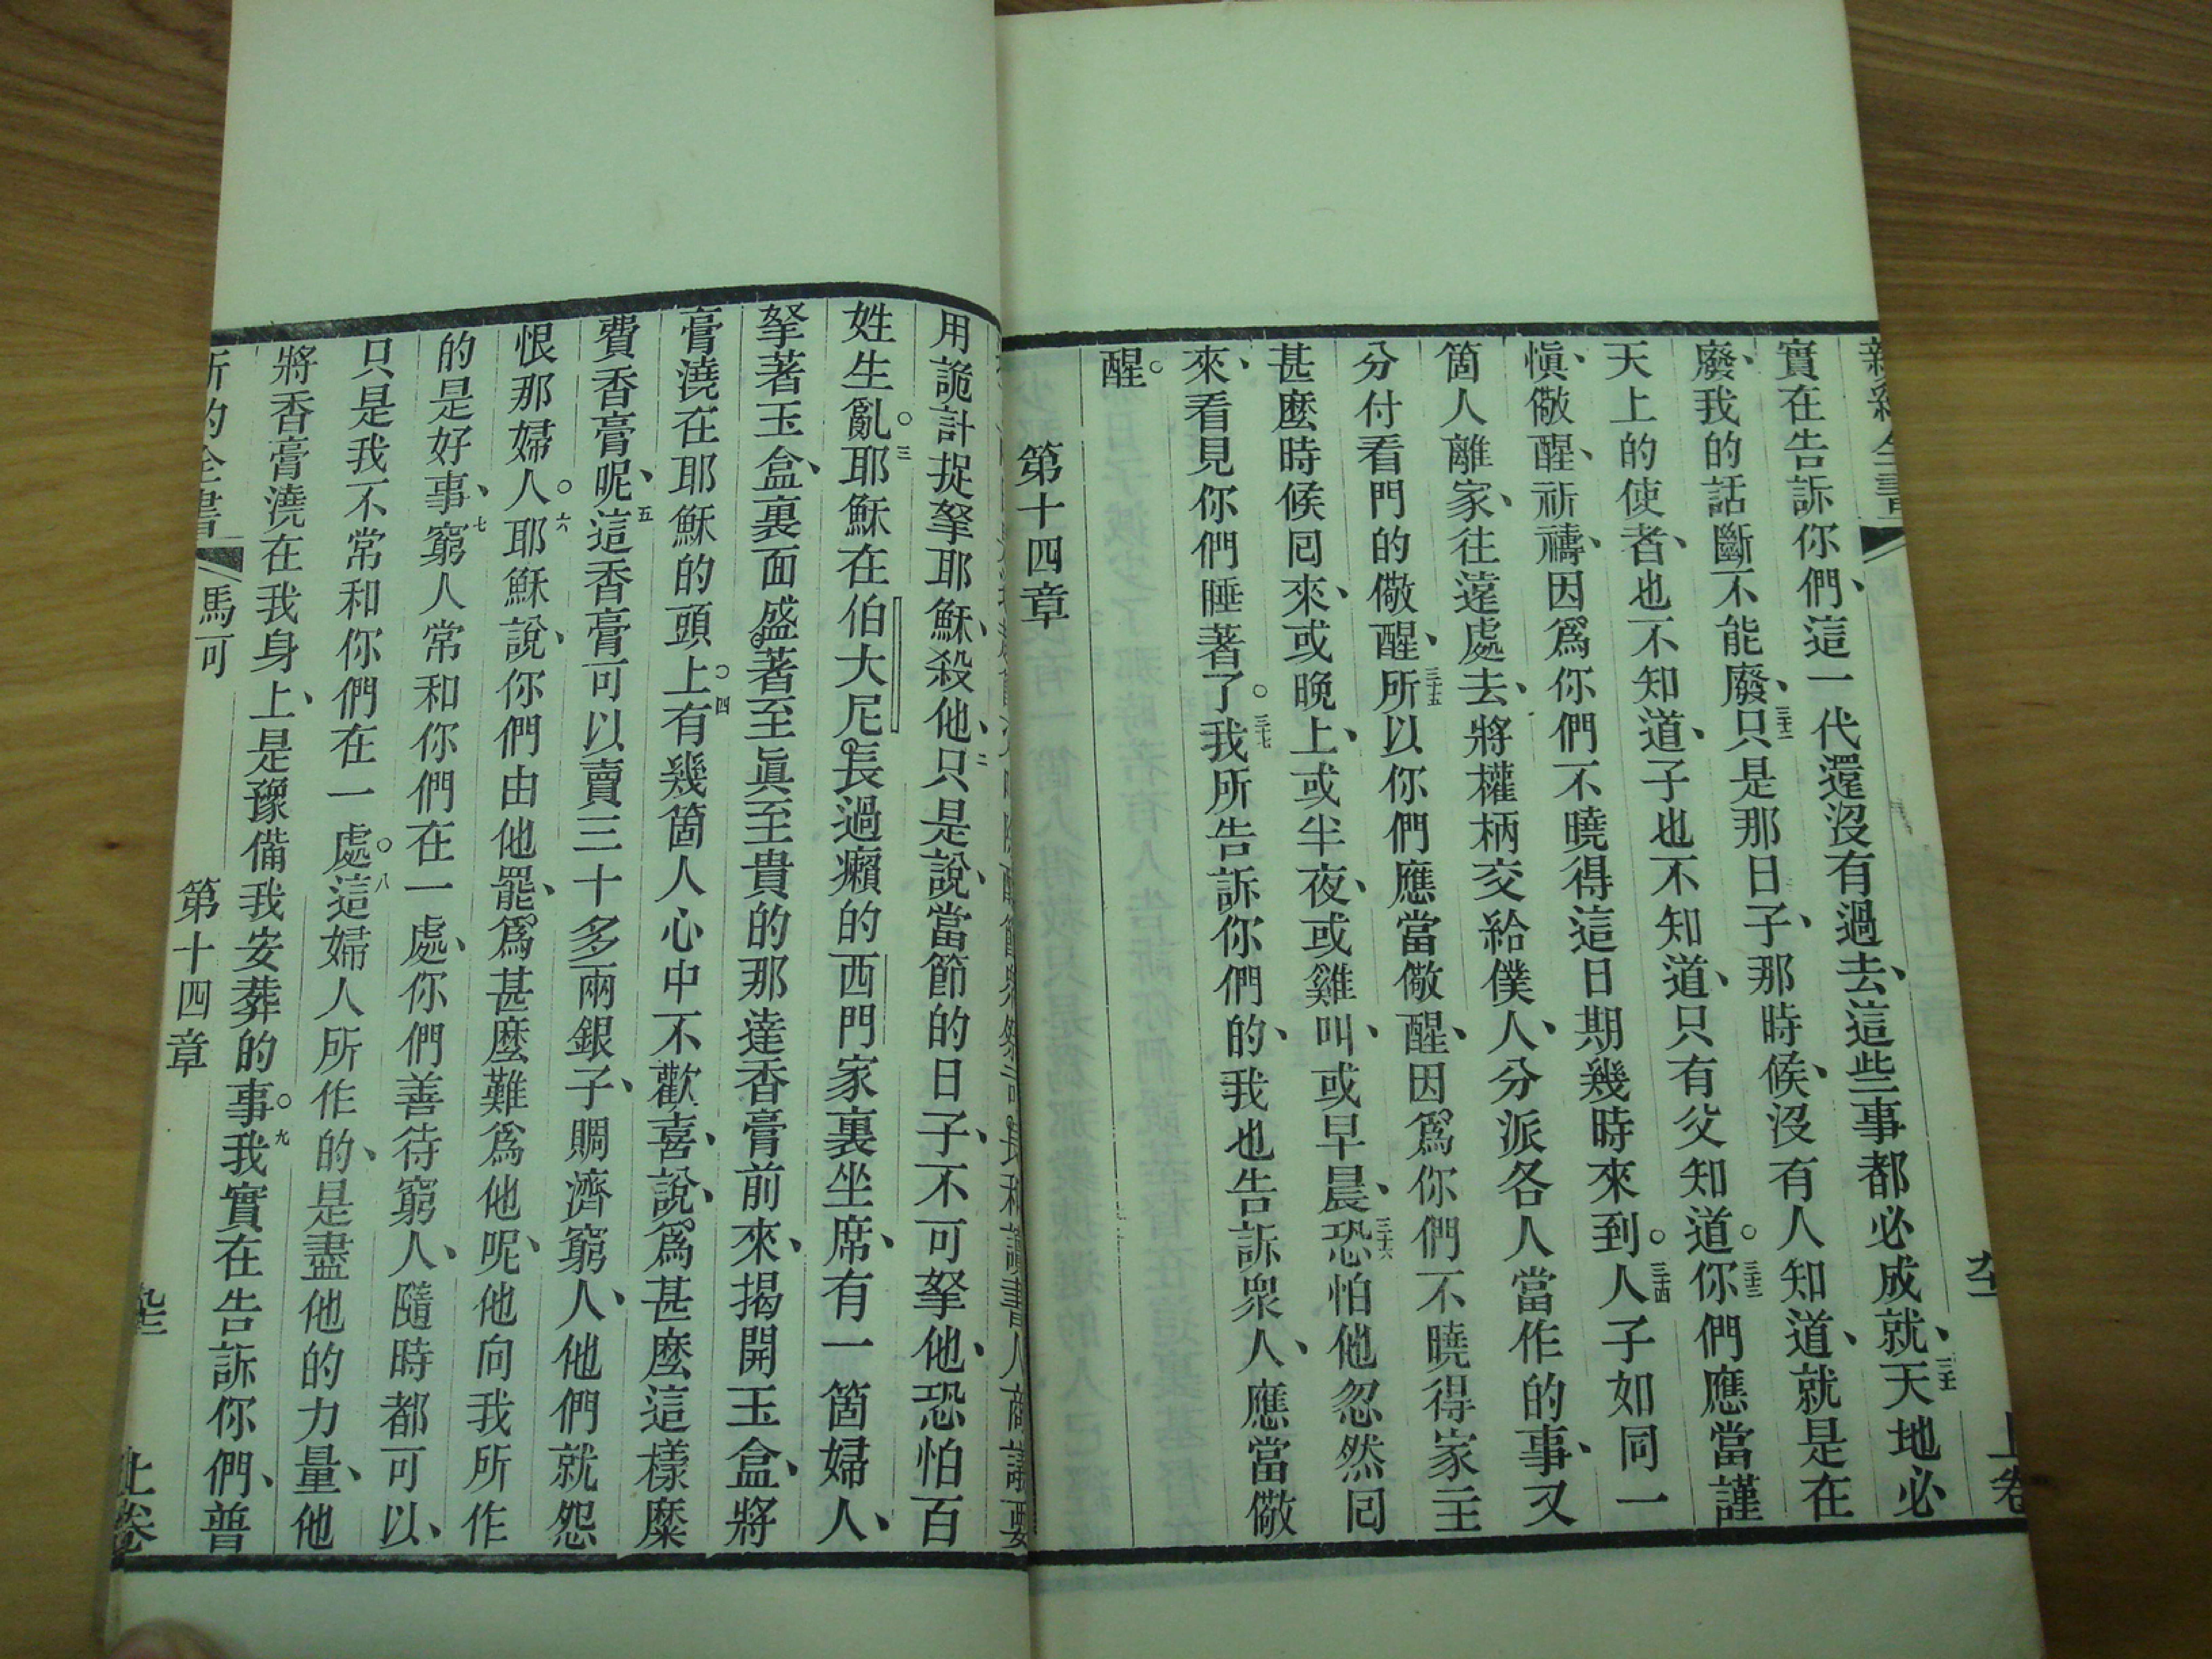 實在告訴你們、這一代還沒有過去、這些事都必成就、三十一天地必
廢、我的話斷不能廢、三十二只是那日子、那時候、沒有人知道、就是在
天上的使者、也不知道、子也不知道、只有父知道。三十三你們應當謹
愼、儆醒、祈禱、因爲你們不曉得這日期幾時來到。三十四人子如同一
箇人離家、往遠處去、將權柄交給僕人、分派各人當作的事、又
分付看門的儆醒、三十五所以你們應當儆醒、因爲你們不曉得家主
甚麼時候囘來、或晚上、或半夜、或雞叫、或早晨、三十六恐怕他忽然囘
來、看見你們睡著了。三十七我所告訴你們的、我也告訴衆人、應當儆
醒。
第十四章
用詭計捉拏耶穌、殺他、二只是說、當節的日子、不可拏他、恐怕百
姓生亂。三耶穌在伯大尼長過癩的西門家裏坐席、有一箇婦人、
拏著玉盒、裏面盛著至眞至貴的那達香膏前來、揭開玉盒、將
膏澆在耶穌的頭上。四有幾箇人心中不歡喜、說、爲甚麼這樣糜
費香膏呢、五這香膏可以賣三十多兩銀子、賙濟窮人、他們就怨
恨那婦人。六耶穌說、你們由他罷、爲甚麼難爲他呢、他向我所作
的是好事、七窮人常和你們在一處、你們善待窮人、隨時都可以、
只是我不常和你們在一處。八這婦人所作的、是盡他的力量、他
將香膏澆在我身上、是豫備我安葬的事。九我實在告訴你們、普
馬可 第十四章